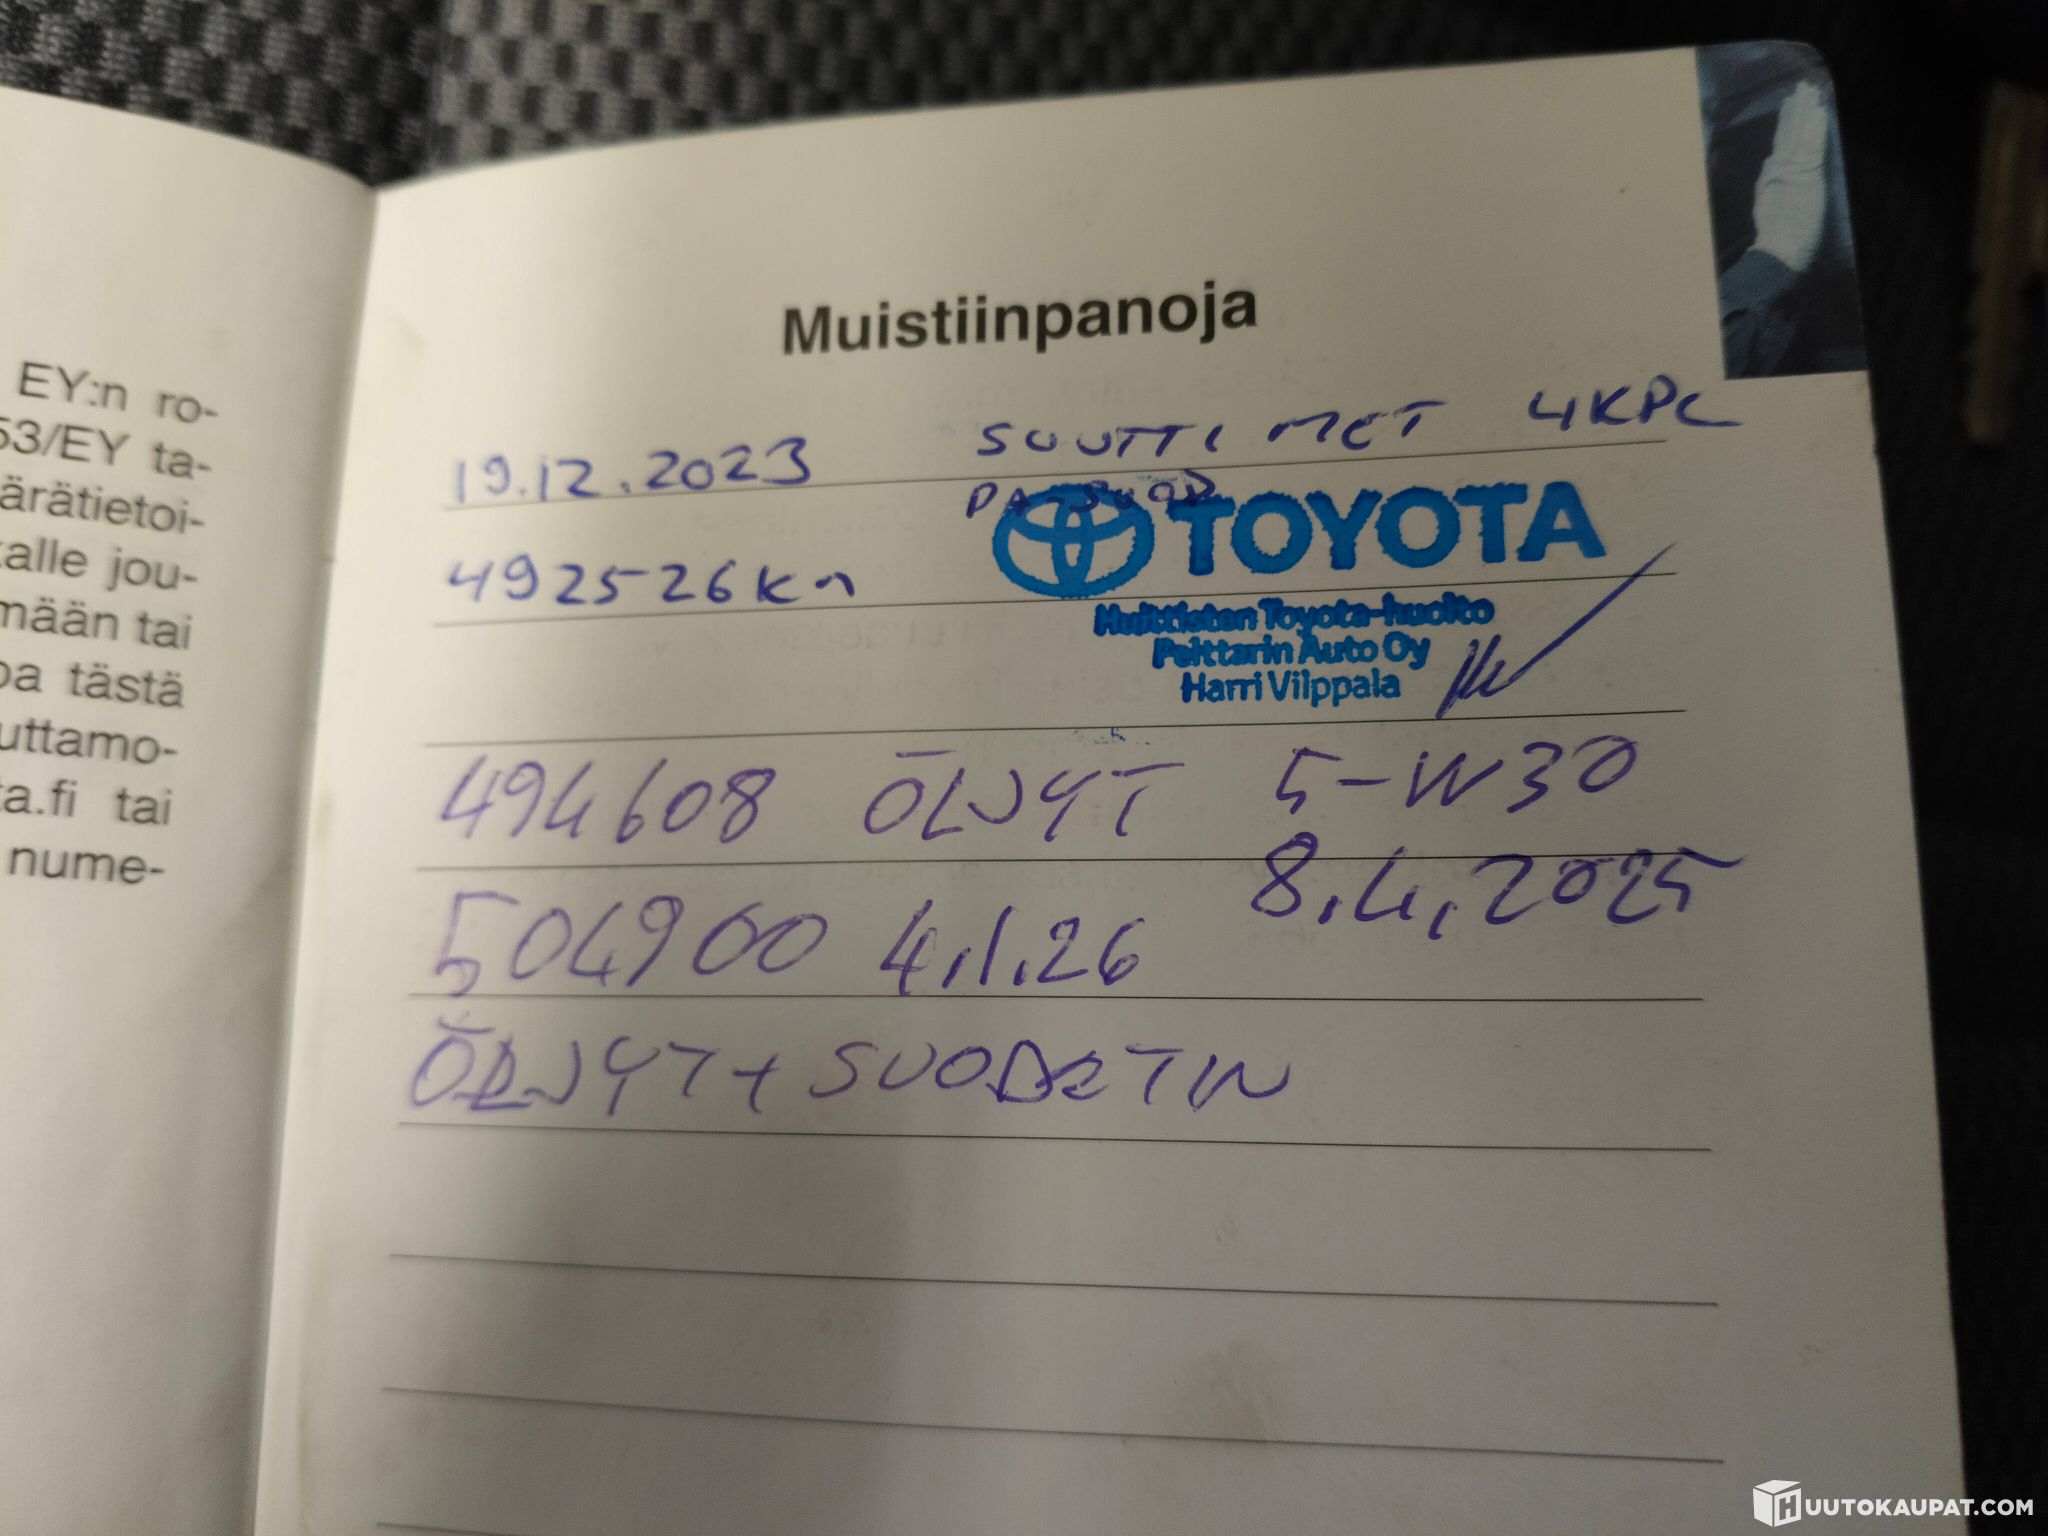 EY:n ro-
53/EY ta-
ärätietoi-
alle jou-
mään tai
pa tästä
uttamo-
ta.fi tai
nume-
Muistiinpanoja
19.12.2023 SUUTTIMET 4KPL
492526 km TOYOTA
Huittisten Toyota-huolto
Peittarin Auto Oy
Harri Vilppala
494608 ÖLJYT 5-W30
8.4.2025
504900 4.1.26
ÖLJYT + SUODATIN
HUUTOKAUPAT.COM